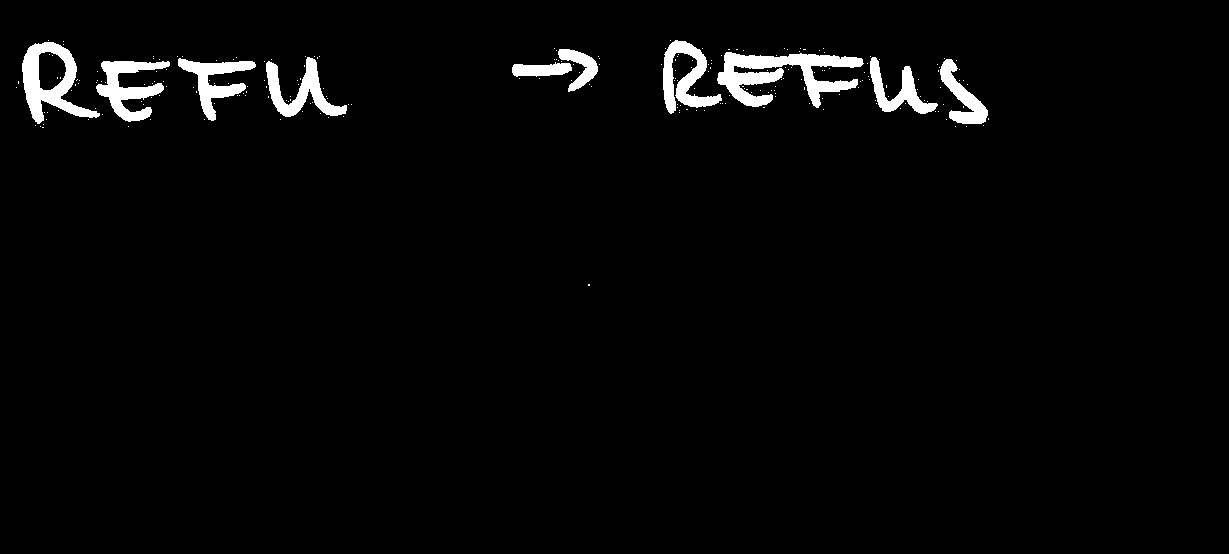 REFU → REFUS